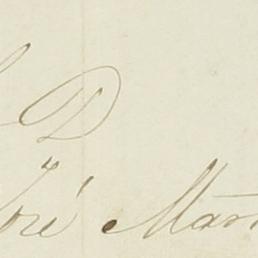 D
José Mar